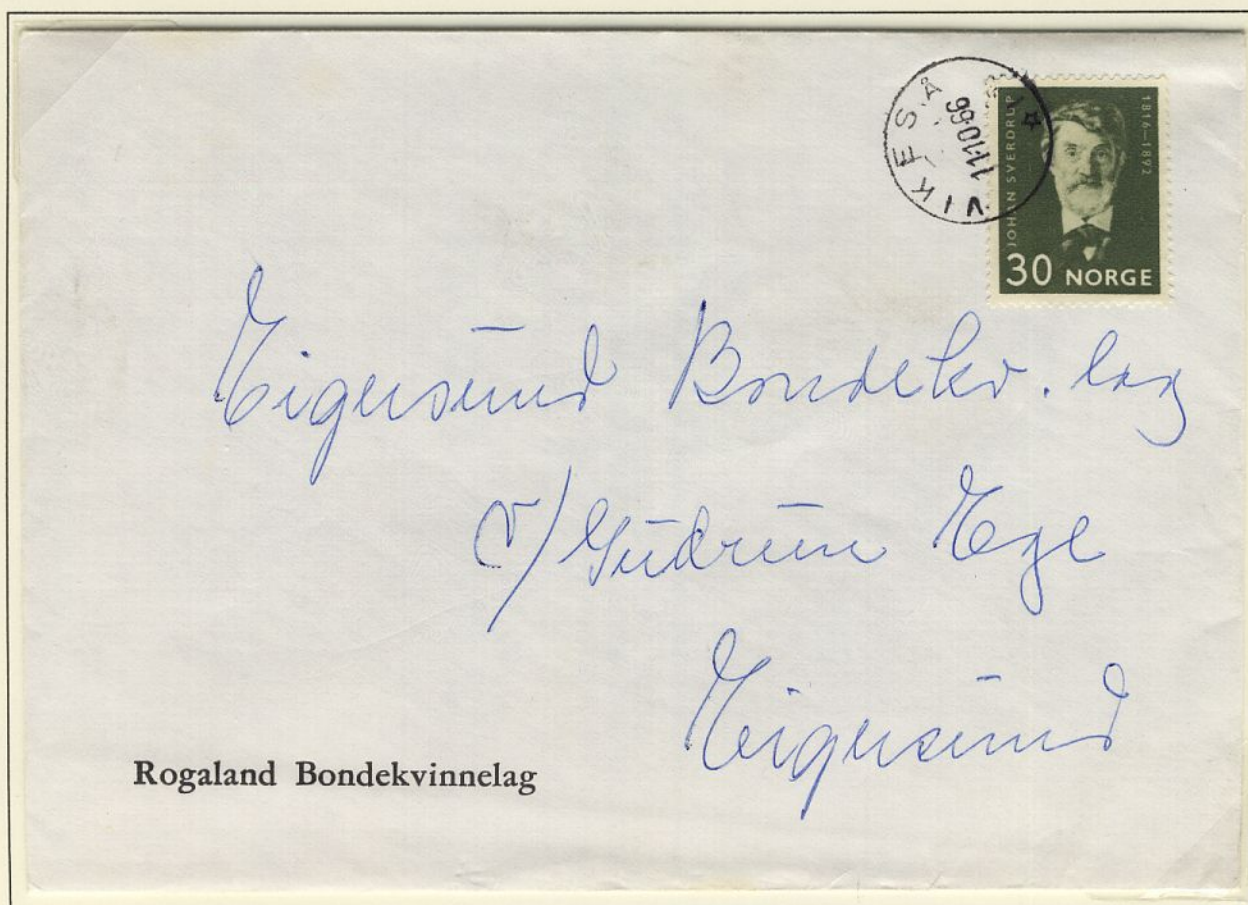 VIKESÅ
11-10-66
JOHAN SVERDRUP
1816–1892
30 NORGE
Eigersund Bondekv. lag
v/ Gudrun Ege
Eigersund
Rogaland Bondekvinnelag